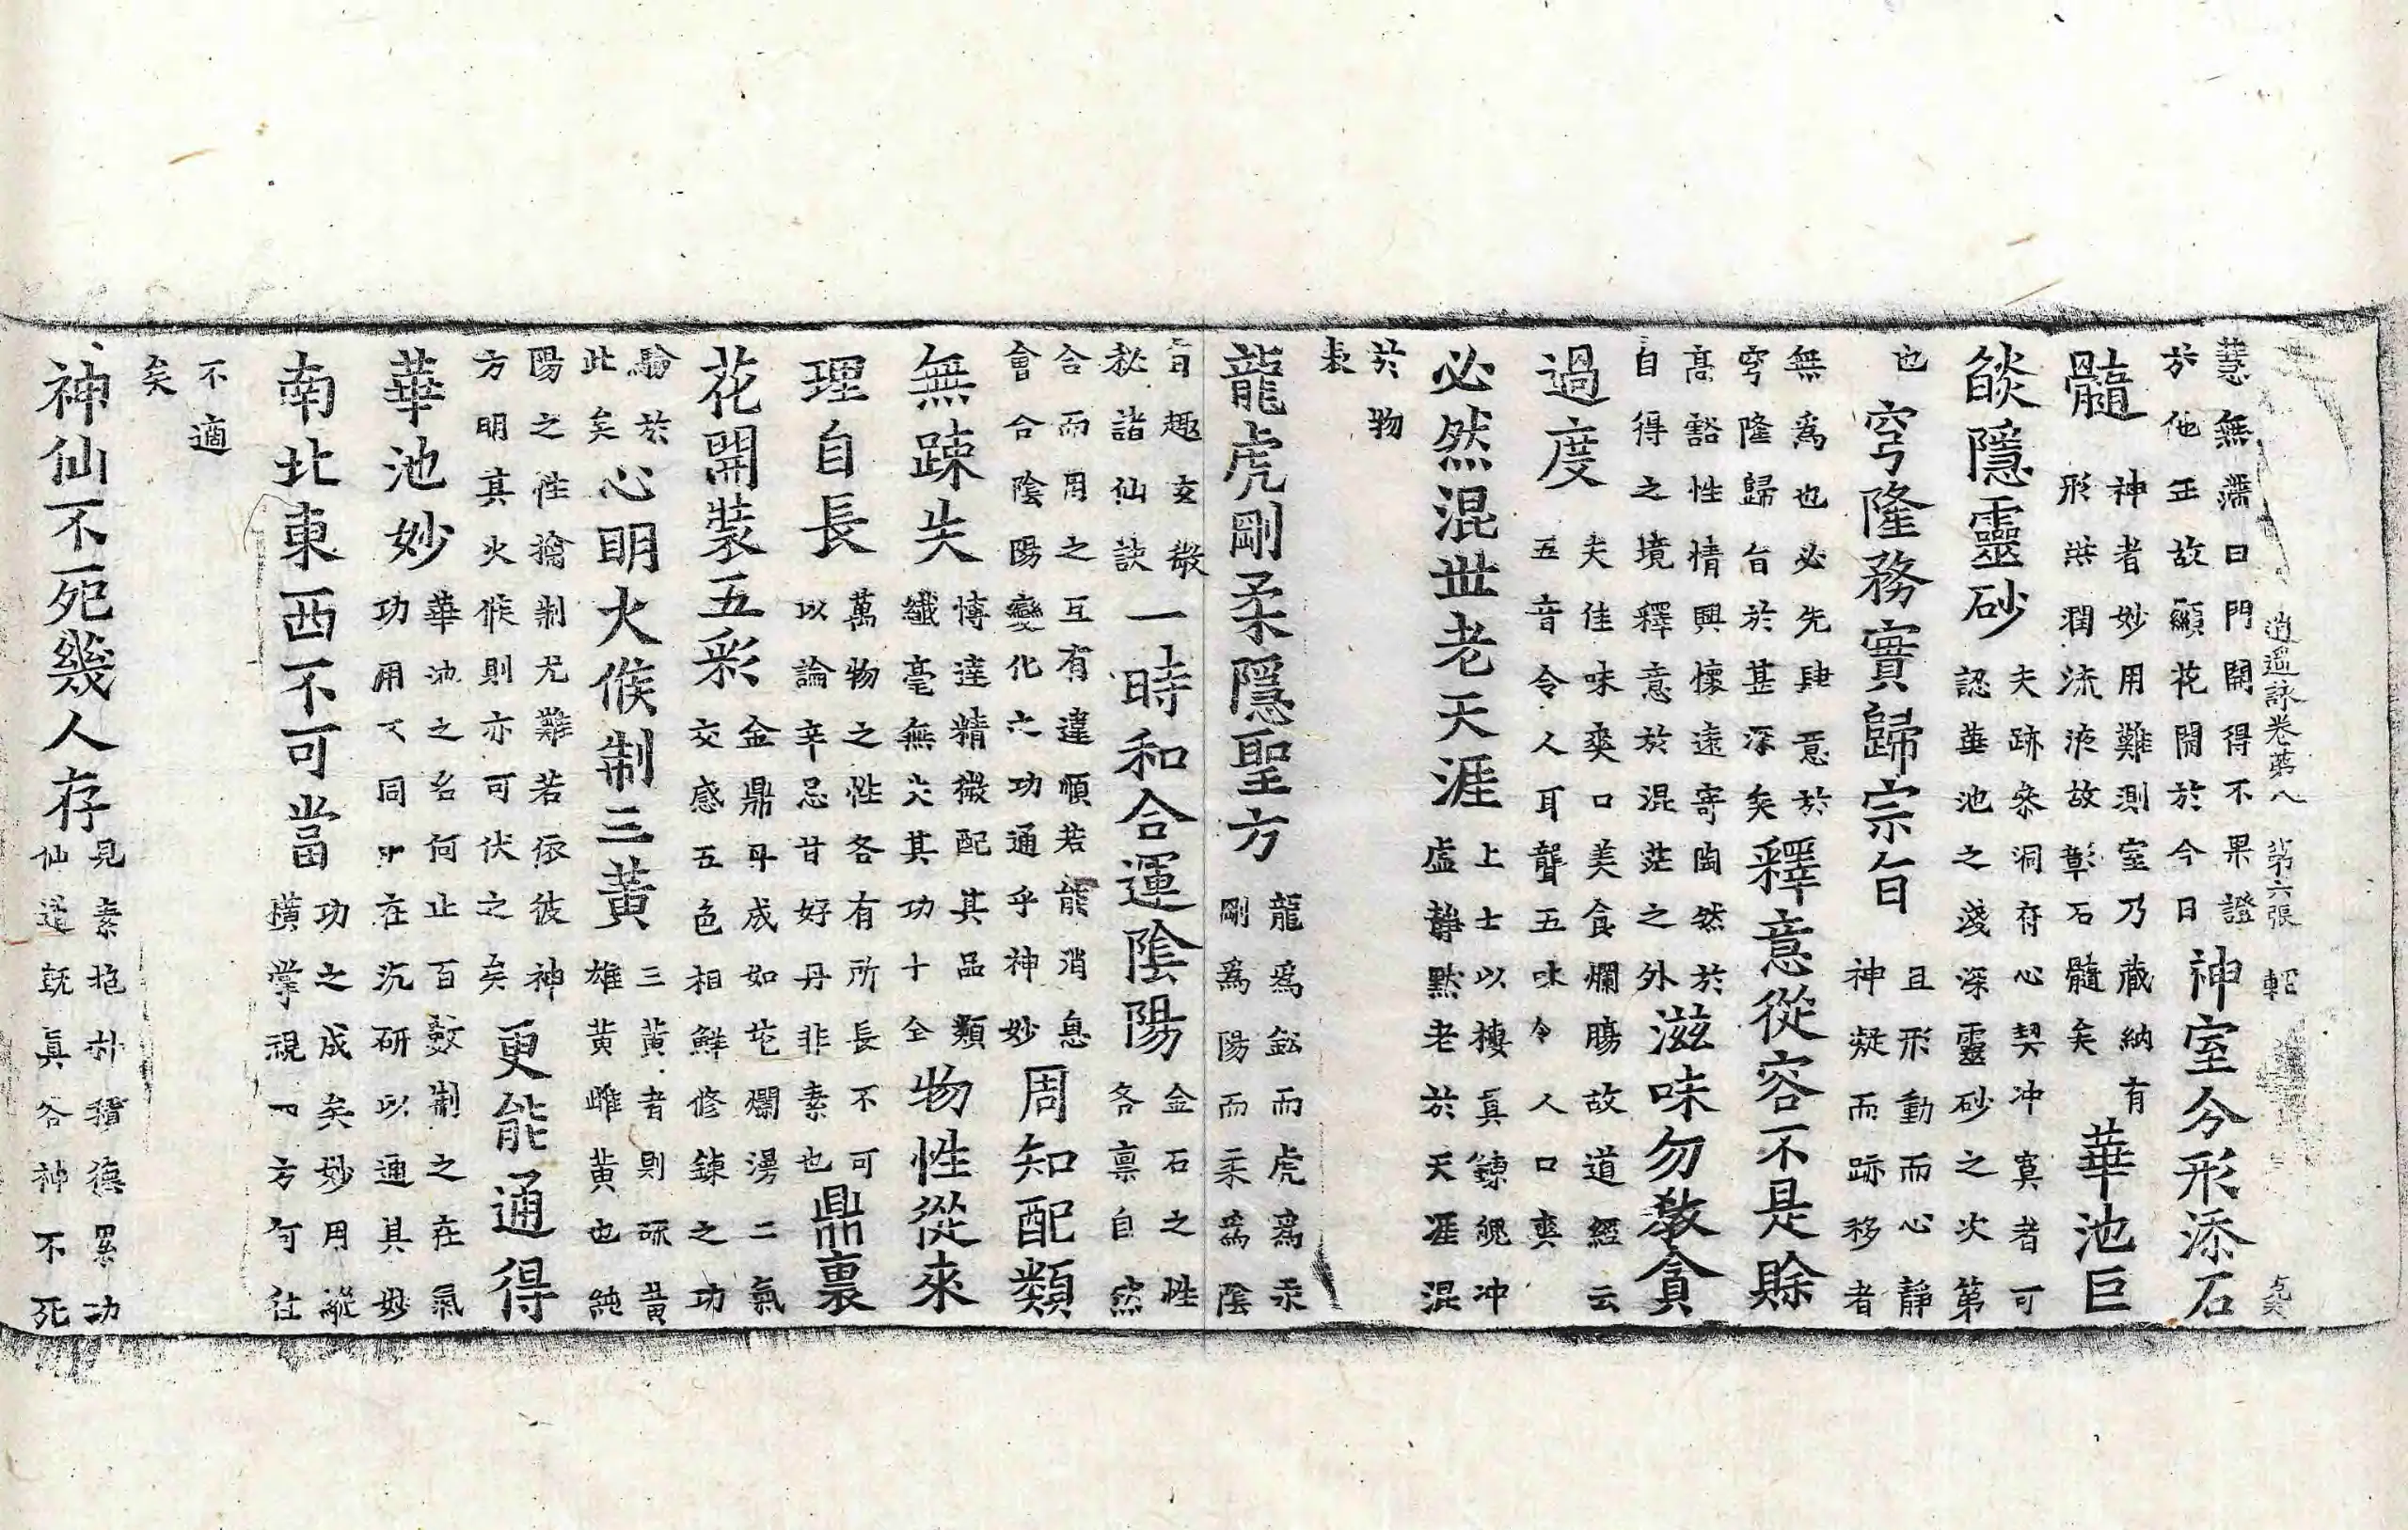 逍遥詠卷第八 第六張 輕
慧無滯日門開得不果證
於他正故顯花開於今日
神室分形添石
髓
神者妙用難測室乃藏納有
形洪潤流液故彰石髓矣
華池巨
燄隱靈砂
夫跡叅洞府心契冲寞者可
認華池之淺深靈砂之次第
也
穹隆務實歸宗旨
且形動而心靜
神凝而跡移者
無爲也必先肆意於
穹隆歸旨於甚深矣
釋意從容不是賖
髙谿性情興懷遠寄陶然於
自得之境釋意於混茫之外
滋味勿教貪
過度
夫佳味爽口美食爛膓故道經云
五音令人耳聾五味令人口爽
必然混丗老天涯
上士以棲真鍊魄冲
虛靜默老於天涯混
於物
表
龍虎剛柔隱聖方
龍爲鈆而虎爲汞
剛爲陽而柔爲陰
旨趣玄微
秘諸仙訣
一時和合運陰陽
金石之性
各禀自然
合而用之互有違順若能消息
會合陰陽變化之功通乎神妙
周知配類
無踈失
博達精微配其品類
纖毫無失其功十全
物性從來
理自長
萬物之性各有所長不可
以論辛忌甘好丹非素也
鼎裏
花開裝五彩
金鼎丹成如花爛漫二氣
交感五色相鮮修鍊之功
驗於
此矣
心明火候制三黃
三黃者則硫黃
雄黃雌黃也純
陽之性擒制尤難若依彼神
方明其火候則亦可伏之矣
更能通得
華池妙
華池之名何止百數制之在氣
功用不同中在沉研以通其妙
南北東西不可當
功之成矣妙用縱
橫掌視一方何往
不適
矣
神仙不死幾人存
見素抱朴積德累功
仙道旣真谷神不死